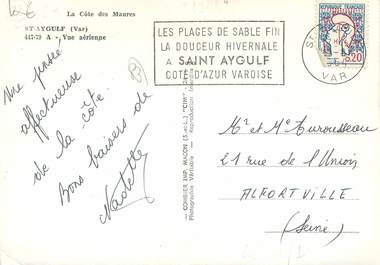 La Côte des Maures
ST-AYGULF (Var)
447-79 A - Vue aérienne
LES PLAGES DE SABLE FIN
LA DOUCEUR HIVERNALE
A SAINT AYGULF
COTE D'AZUR VAROISE
VAR
REPUBLIQUE FRANCAISE
0,20
Une pensée
affectueuse
de la côte.
Bons baisers de
Nadette
COMBIER IMP. MACON (S.-et-L.) "CIM"
Photographie Véritable - Reproduction interdite
Mr et Me Aurousseau
21 rue de l'Union
ALFORTVILLE
(Seine)